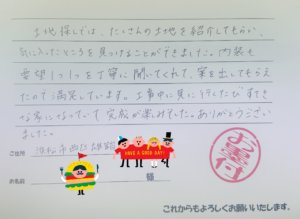 土地探しでは、たくさんの土地を紹介してもらい、
気に入ったところを見つけることができました。内装も
要望1つ1つを丁寧に聞いてくれて、案を出してもらえ
たので満足しています。工事中に見に行くたびすてき
な家になっていて完成が楽しみでした。ありがとうござい
ました。
お墨付
ご住所 浜松市西区雄踏
HAVE A GOOD DAY!
お名前 様
これからもよろしくお願いいたします。